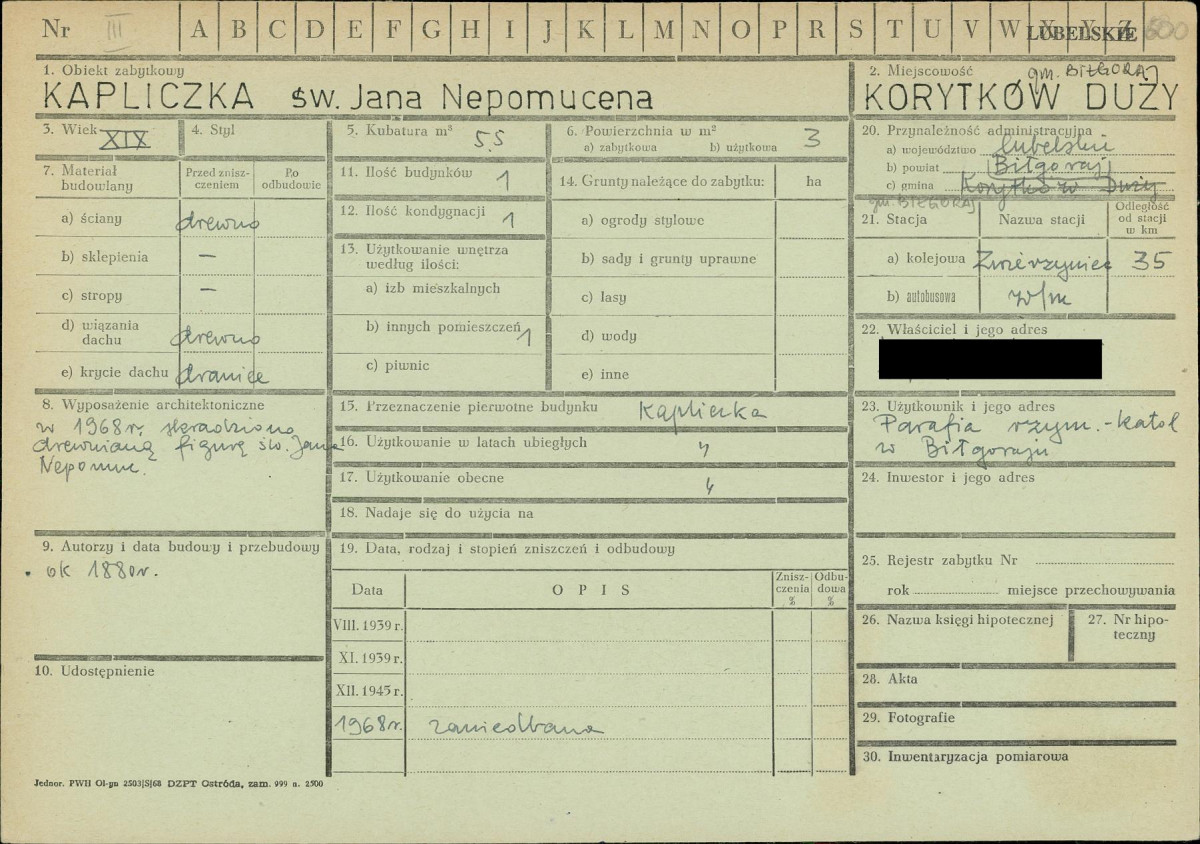 Nr III A B C D E F G H I J K L M N O P R S T U V W X Y Z
LUBELSKIE 600
1. Obiekt zabytkowy
KAPLICZKA św. Jana Nepomucena
2. Miejscowość gm. BIŁGORAJ
KORYTKÓW DUŻY
3. Wiek XIX
4. Styl
5. Kubatura m³ 5.5
6. Powierzchnia w m²
a) zabytkowa b) użytkowa 3
7. Materiał budowlany
Przed zniszczeniem
Po odbudowie
a) ściany drewno
b) sklepienia —
c) stropy —
d) wiązania dachu drewno
e) krycie dachu dranice
8. Wyposażenie architektoniczne
w 1968r. skradziono
drewnianą figurę św. Jana
Nepomuc.
9. Autorzy i data budowy i przebudowy
ok 1880r.
10. Udostępnienie
11. Ilość budynków 1
12. Ilość kondygnacji 1
13. Użytkowanie wnętrza
według ilości:
a) izb mieszkalnych
b) innych pomieszczeń 1
c) piwnic
14. Grunty należące do zabytku: ha
a) ogrody stylowe
b) sady i grunty uprawne
c) lasy
d) wody
e) inne
15. Przeznaczenie pierwotne budynku Kapliczka
16. Użytkowanie w latach ubiegłych "
17. Użytkowanie obecne "
18. Nadaje się do użycia na
19. Data, rodzaj i stopień zniszczeń i odbudowy
Data
O P I S
Zniszczenia %
Odbudowa %
VIII. 1939 r.
XI. 1939 r.
XII. 1945 r.
1968r. zaniedbana
20. Przynależność administracyjna
a) województwo lubelskie
b) powiat Biłgoraj
c) gmina Korytków Duży
gm. BIŁGORAJ
21. Stacja
Nazwa stacji
Odległość od stacji w km
a) kolejowa Zwierzyniec 35
b) autobusowa w/m
22. Właściciel i jego adres
23. Użytkownik i jego adres
Parafia rzym.-katol
w Biłgoraju
24. Inwestor i jego adres
25. Rejestr zabytku Nr
rok miejsce przechowywania
26. Nazwa księgi hipotecznej
27. Nr hipoteczny
28. Akta
29. Fotografie
30. Inwentaryzacja pomiarowa
Jednor. PWH Ol-yn 2503|S|68 DZPT Ostróda, zam. 999 n. 2500